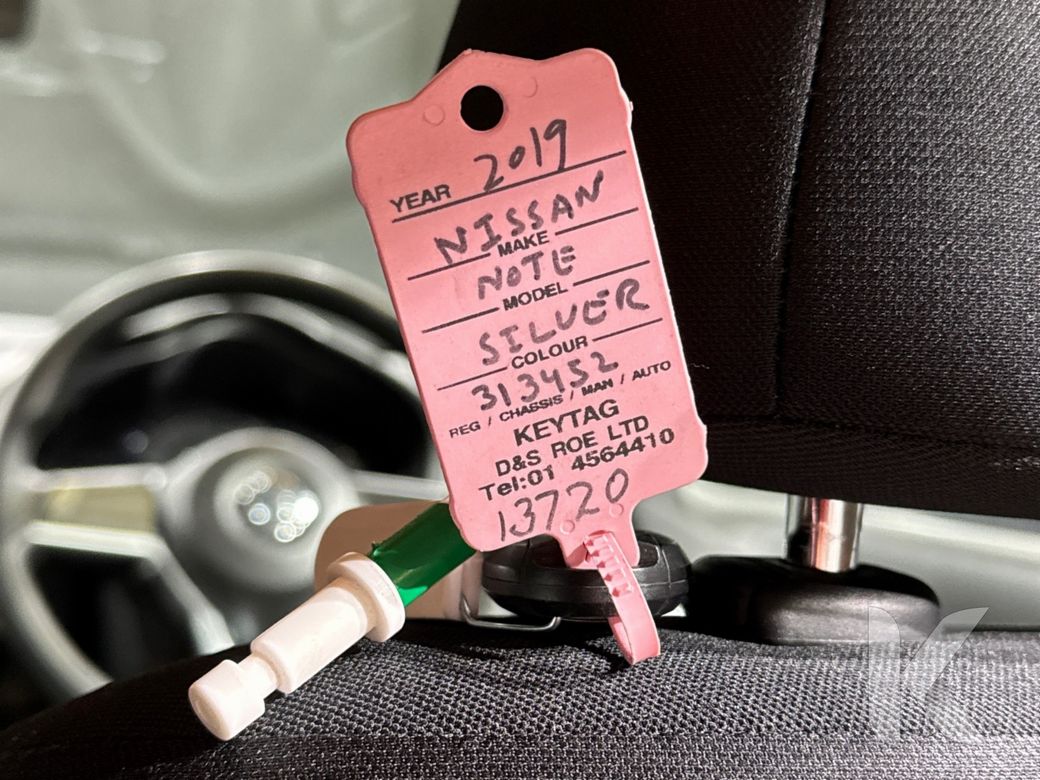 YEAR 2019
NISSAN
MAKE
NOTE
MODEL
SILVER
COLOUR
313452
REG / CHASSIS / MAN / AUTO
KEYTAG
D&S ROE LTD
Tel:01 4564410
13720